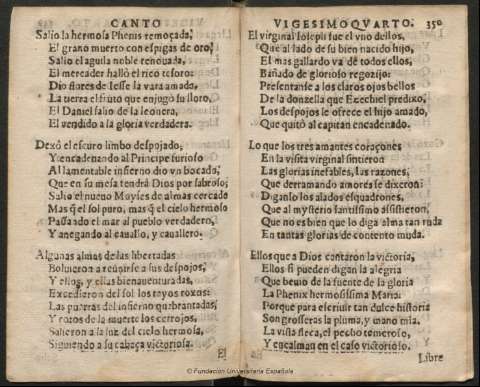 CANTO
Salio la hermosa Phenix remoçada,
El grano muerto con espigas de oro,
Salio el aguila noble renouada,
El mercader hallò el rico tesoro:
Dio flores de Iesse la vara amada,
La tierra el fruto que enjugò su lloro,
El Daniel salio de la leonera,
El vendido a la gloria verdadera.
Dexò el escuro limbo despojado,
Y encadenando al Principe furioso
Al lamentable infierno dio vn bocado,
Que en su mesa tendrà Dios por sabroso;
Salio el nueuo Moyses de almas cercado
Mas q̃ el sol puro, mas q̃ el cielo hermoso
Passado el mar al pueblo verdadero,
Y anegando al cauallo, y cauallero.
Algunas almas de las libertadas
Boluieron a reunirse a sus despojos,
Y ellos, y ellas bienauenturadas,
Excedieron del sol los rayos roxos:
Las puertas del infierno quebrantadas,
Y rotos de la muerte los cerrojos,
Salieron a la luz del cielo hermosa,
Siguiendo a su cabeça victoriosa.
El
VIGESIMOQVARTO. 350
El virginal Ioseph fue el vno dellos,
Que al lado de su bien nacido hijo,
El mas gallardo va de todos ellos,
Bañado de glorioso regozijo:
Presentanse a los claros ojos bellos
De la donzella que Ezechiel predixo,
Los despojos le ofrece el hijo amado,
Que quitò al capitan encadenado.
Lo que los tres amantes coraçones
En la visita virginal sintieron
Las glorias inefables, las razones,
Que derramando amores se dixeron:
Diganlo los alados esquadrones,
Que al mysterio santissimo assistieron,
Que no es bien que lo diga alma tan ruda
En tantas glorias de contento muda.
Ellos que a Dios cantaron la victoria,
Ellos si pueden digan la alegria
Que beuio de la fuente de la gloria
La Phenix hermosissima Maria:
Porque para escriuir tan dulce historia
Son grosseras la pluma, y mano mia,
La vista flaca, el pecho temeroso,
Y encalman en el caso victorioso.
Libre
© Fundación Universitaria Española